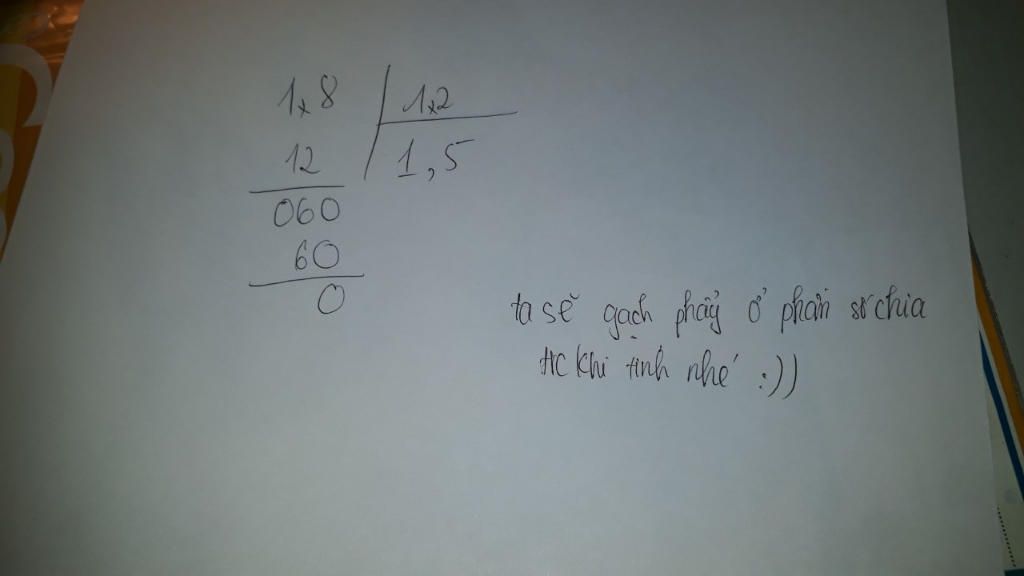 1,8 | 1,2
12 | 1,5
060
60
0
ta sẽ gạch phẩy ở phần số chia
trc khi tính nhé :))